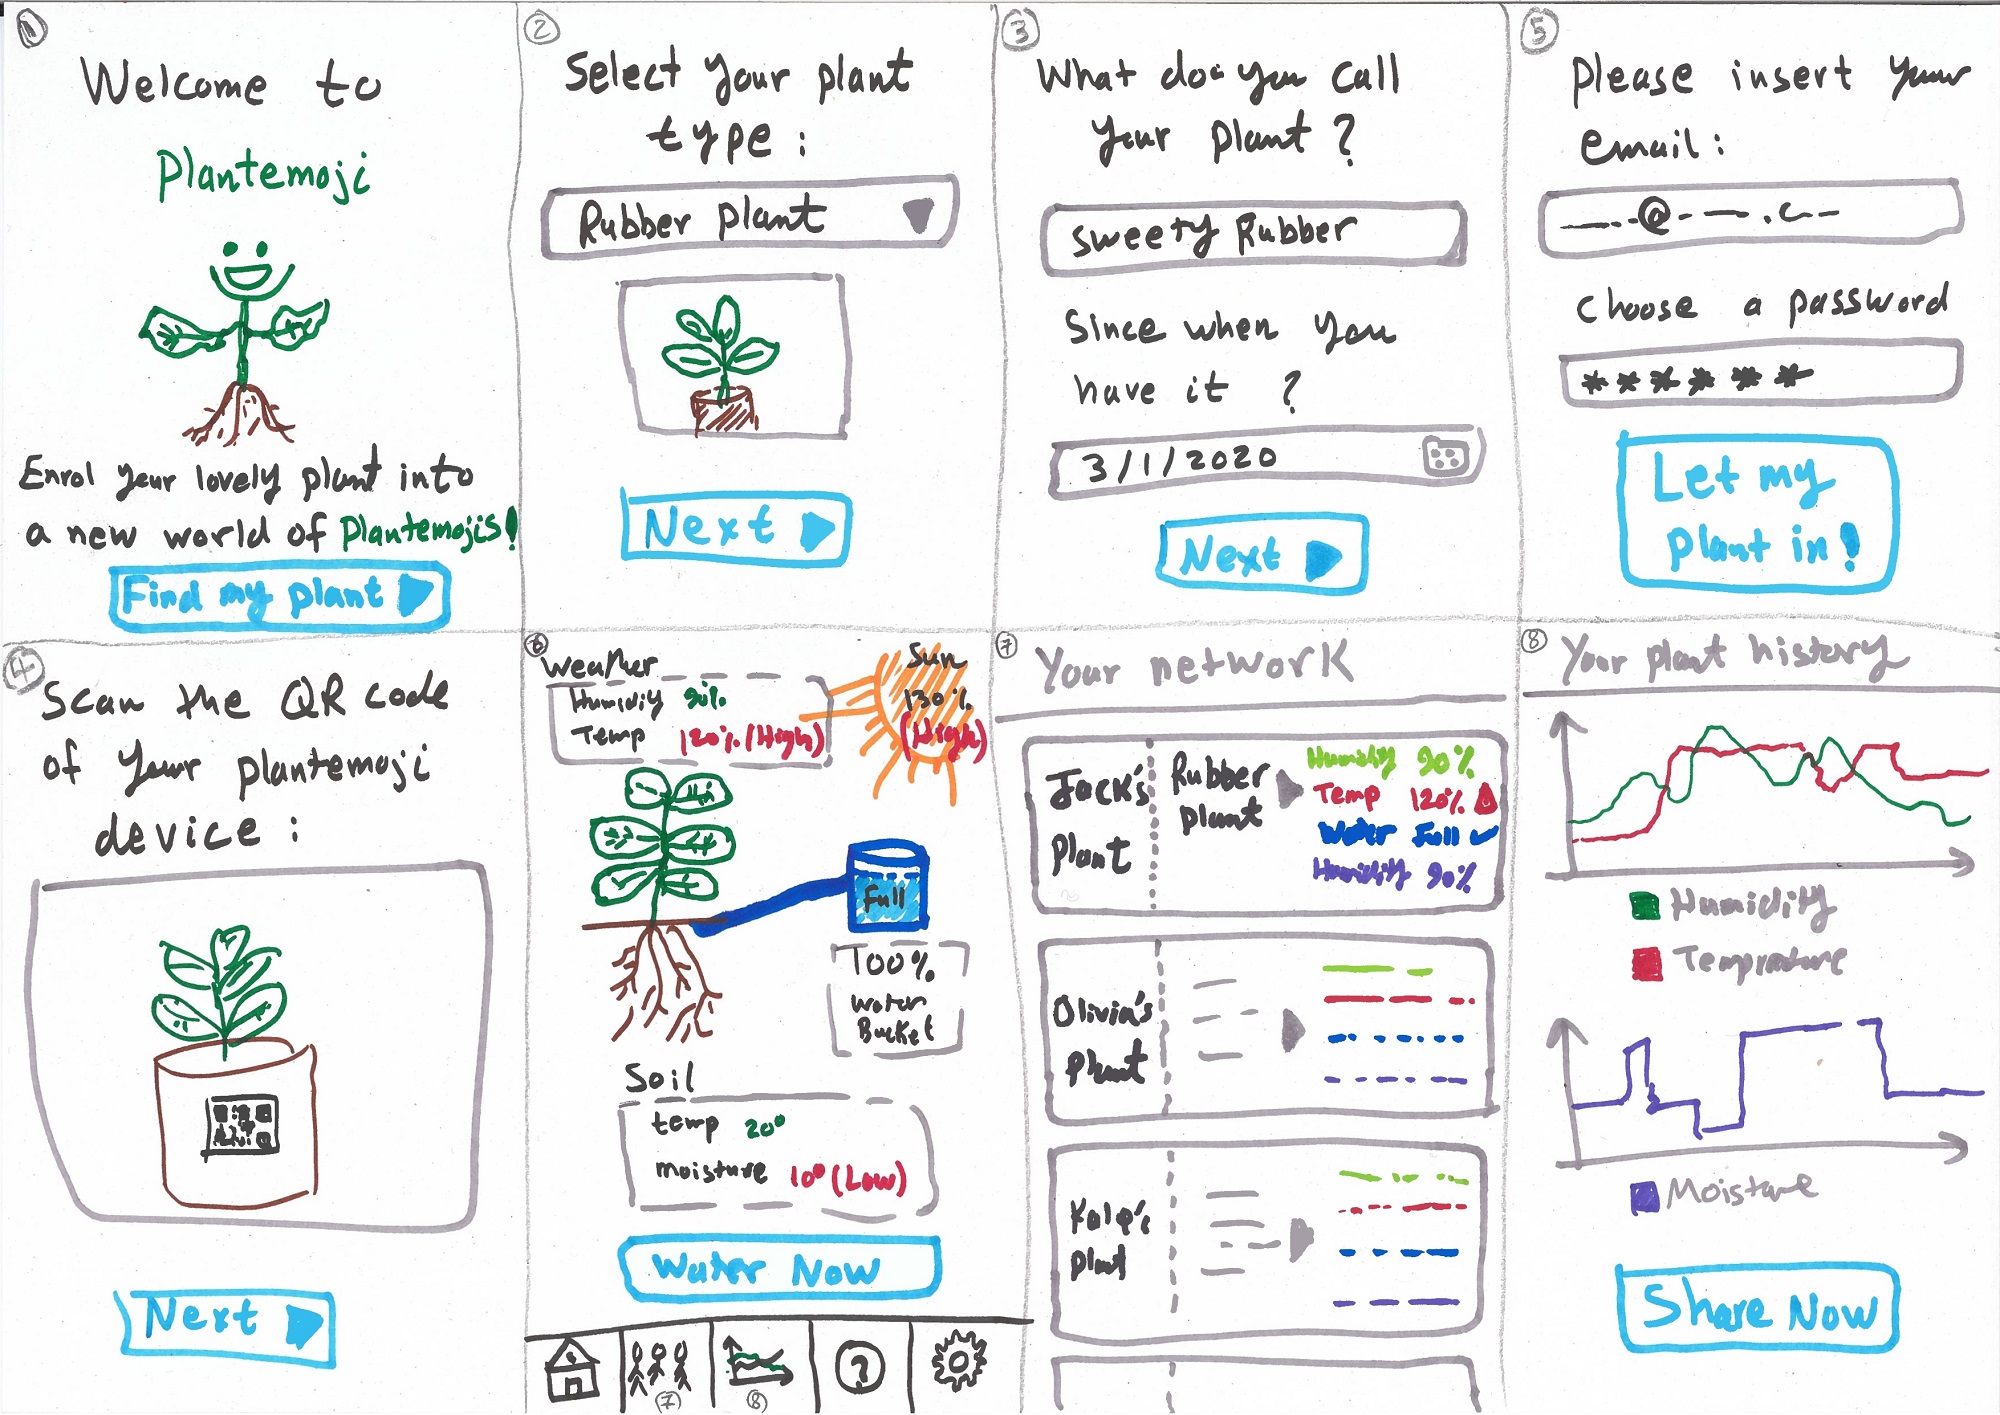 1
Welcome to
Plantemoji
Enrol your lovely plant into
a new world of Plantemojis!
Find my plant
2
Select your plant
type:
Rubber plant
Next
3
What do you call
your plant?
Sweety Rubber
Since when you
have it ?
3/1/2020
Next
5
Please insert your
email:
@
choose a password
******
Let my
plant in!
4
Scan the QR code
of your plantemoji
device:
Next
6
Weather
Humidity 90%
Temp 120% (High)
Sun
130%
(High)
Full
100%
Water
Bucket
Soil
temp 20°
moisture 10° (Low)
Water Now
?
7
8
7
Your network
Jack's
Plant
Rubber
Plant
Humidity 90%
Temp 120%
Water Full
Humidity 90%
Olivia's
Plant
Plant
8
Your plant history
Humidity
Temprature
Moisture
Share Now